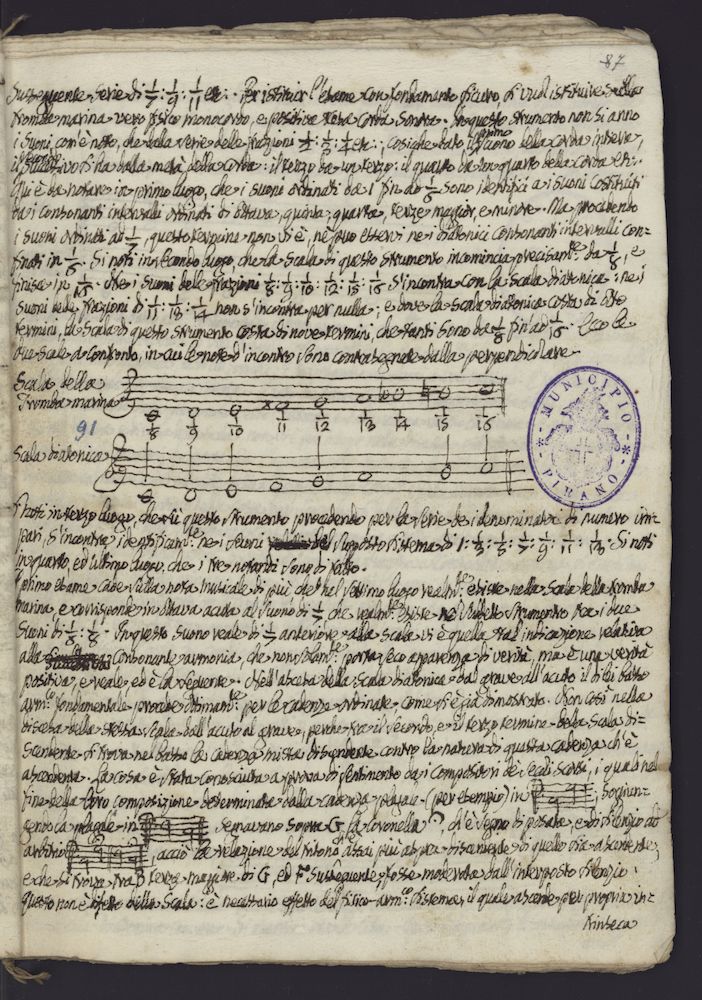 87
susseguente serie di 1/7: 1/9: 1/11 etc: Per istituir l'esame con fondamento sicuro, si vuol istituire sulla
tromba marina vero fisico monocordo, e positiva tesa corda sonora. In questo strumento non si anno
i suoni, com'è noto, che dalla serie delle frazioni 1/2: 1/3: 1/4 etc: cosicche dato il primo suono della corda intiera,
il secondo si ha dalla metà della corda: il terzo da un terzo: il quarto da un quarto della corda etc:
Qui è da notare in primo luogo, che i suoni ordinati da 1 fin ad 1/6 sono identifici ai suoni costituiti
da i consonanti intervalli ordinati di ottava, quinta, quarta, terze maggior, e minore. Ma procedendo
i suoni ordinati ad 1/7, questo termine non vi è, nè può esservi ne i diatonici consonanti intervalli con-
finati in 1/6. Si noti in secondo luogo, che la scala di questo strumento incomincia precisamte da 1/8, e
finisce in 1/16. Che i suoni delle frazioni 1/8: 1/9: 1/10: 1/12: 1/15: 1/16 s'incontra con la scala diatonica: ne i
suoni delle frazioni di 1/11: 1/13: 1/14 non s'incontra per nulla; e dove la scala diatonica costa di otto
termini, la scala di questo strumento costa di nove termini, che tanti sono da 1/8 fin ad 1/16. Ecco le
due scale a confronto, in cui le note d'incontro sono contrasegnate dalla perpendicolare
Scala della
Tromba marina
1/8 1/9 1/10 1/11 1/12 1/13 1/14 15 16
91
Scala diatonica
MUNICIPIO
PIRANO
Notisi in terzo luogo, che sù questo strumento procedendo per la serie dei denominatori di numero im-
pari, s'incontra identificamte ne i suoni del supposto sistema di 1: 1/3: 1/5: 1/7: 1/9: 1/11: 1/13. Si noti
in quarto, ed ultimo luogo, che i tre notandi sono di fatto.
Il primo esame cade sulla nota musicale di più, che nel settimo luogo realmte esiste nella scala della tromba
marina, e corrisponde in ottava acuta al suono di 1/7, che realmte esiste nel suddetto strumento tra i due
suoni di 1/6: 1/8. In questo suono reale di 1/7 anteriore alla scala vi è quella tal indicazione relativa
alla consonante armonia, che non solamte porta seco apparenza di verità, ma è una verità
positiva, e reale, ed è la seguente. Nell'ascesa della scala diatonica dal grave all'acuto il di lei basso
armco fondamentale procede ottimamte per le cadenze ordinate come si è già dimostrato. Non così nella
discesa della stessa scala dall'acuto al grave, perche tra il secondo, e il terzo termine della scala di-
scendente si trova nel basso la cadenza mista discendente contro la natura di questa cadenza ch'è
ascendente. La cosa è stata conosciuta a prova di sentimento da i compositori de' secoli scorsi, i quali nel
fine della loro composizione determinata dalla cadenza plagale (per esempio) in ; soggiun-
gendo la plagale in segnavano sopra G la coronella, ch'è segno di posate, e di silenzio ad
arbitrio acciò la relazione del tritono assai più aspra discendente di quello sia ascendente,
e che si trova tra B terza maggiore di G, ed F susseguente, fosse moderata dall'interposto silenzio.
Questo non è difetto della scala: è necessario effetto del fisico-armco sistema, il quale ascende per propria in-
trinseca